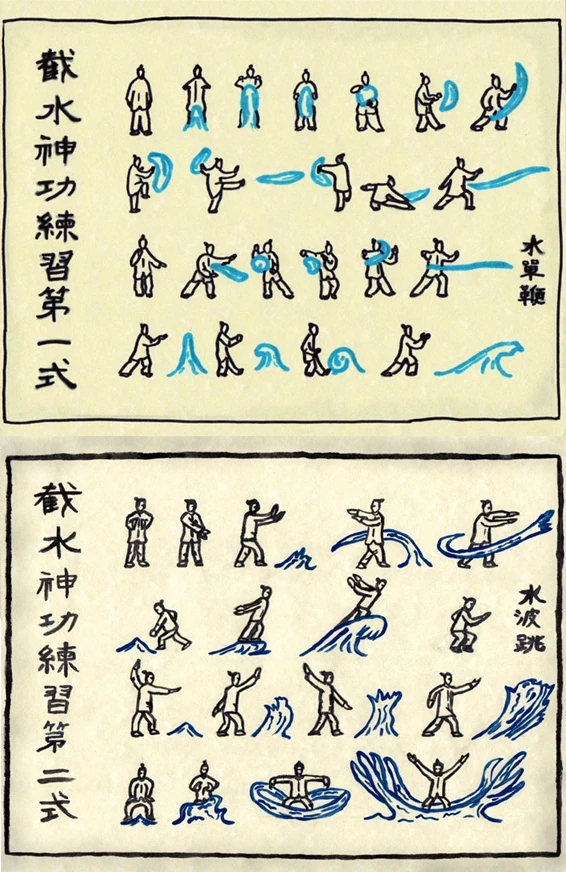 截水神功練習第一式
水單鞭
截水神功練習第二式
水波跳